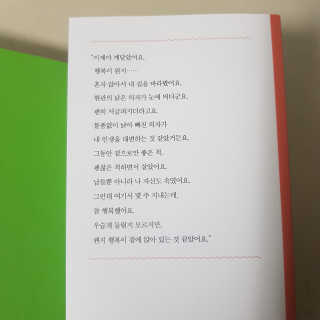 "이제야 깨달았어요.
행복이 뭔지……
혼자 앉아서 내 집을 바라봤어요.
현관의 낡은 의자가 눈에 띄더군요.
괜히 서글퍼지더라고요.
볼품없이 낡아 빠진 의자가
내 인생을 대변하는 것 같았거든요.
그동안 겉으로만 좋은 척,
괜찮은 척하면서 살았어요.
남들뿐 아니라 나 자신도 속였어요.
그런데 여기서 몇 주 지내는데,
참 행복했어요.
우습게 들릴지 모르지만,
왠지 행복이 곁에 앉아 있는 것 같았어요."